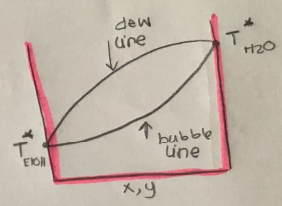 dew
line
T*
H2O
T*
EtOH
bubble
line
x,y